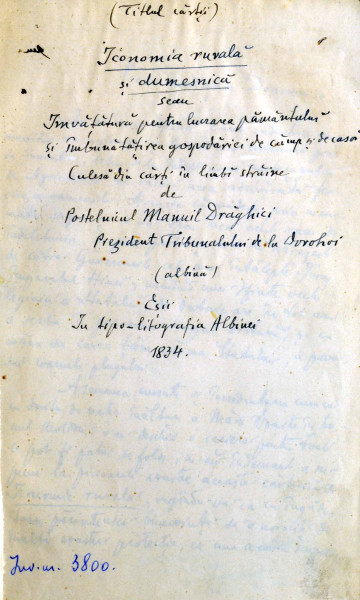 (Titlul cărții)
Iconomia rurală
și dumesnică
seau
Învățătură pentru lucrarea pământului
și Îmbunătățirea gospodăriei de câmp și de casă
Culesă din cărți în limbi străine
de
Postelnicul Manuil Drăghici
Prezident Tribunalului de la Dorohoi
(albină)
Eșii
In tipo-litografia Albinei
1834.
Inv. nr. 3800.